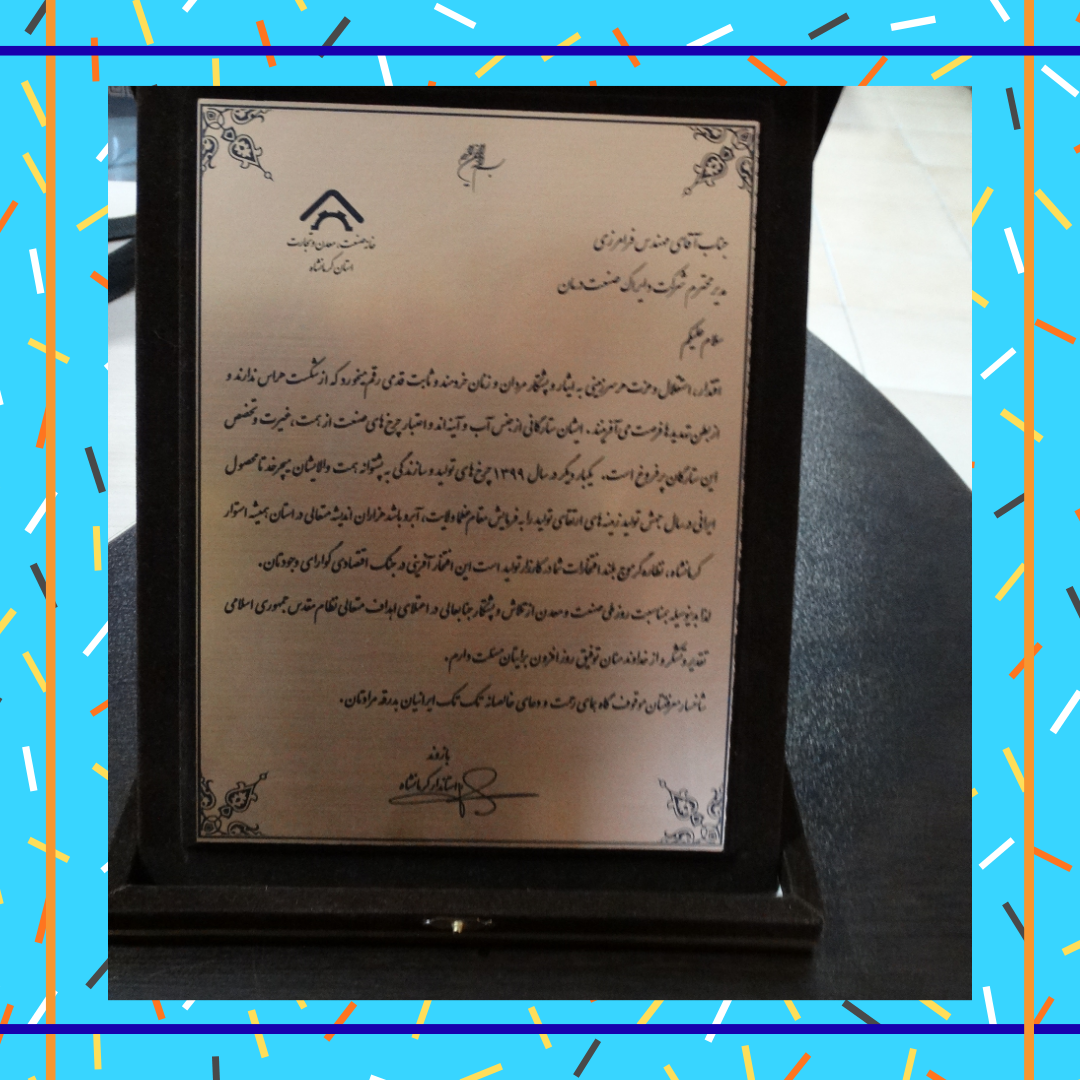 خانه صنعت، معدن و تجارت
استان کرمانشاه
جناب آقای مهندس فرامرزی
مدیر محترم شرکت صنعت درمان
سلام علیکم
اقتدار، استقلال و عزت هر سرزمینی به ایثار و پشتکار مردان و زنان خردمند و ثابت قدمی رقم میخورد که از شکست هراس ندارند و
از بطن تهدیدها فرصت می آفرینند. ایشان ستارگانی از جنس آب و آینه اند و اعتبار چرخ های صنعت از همت، غیرت و تخصص
این ستارگان پر فروغ است. یکبار دیگر در سال ۱۳۹۹ چرخ های تولید و سازندگی به پشتوانه همت والایشان میچرخد تا محصول
ایرانی در سال جهش تولید زمینه های ارتقای تولید را به فرمایش مقام عظما ولایت، آبرو باشد هزاران اندیشه متعالی در استان همیشه استوار
کرمانشاه، نظاره گر موج بلند افتخارات شما در کارزار تولید است این افتخار آفرینی در جنگ اقتصادی گوارای وجودتان.
لذا بدینوسیله بمناسبت روز ملی صنعت و معدن از تلاش و پشتکار جنابعالی در اعتلای اهداف متعالی نظام مقدس جمهوری اسلامی
تقدیر و تشکر و از خداوند منان توفیق روز افزون برایتان مسئلت دارم.
شاخسار معرفتتان موقوف گاه جای رحمت و دعای خالصانه تک تک ایرانیان بدرقه مرادتان.
بازوند
استاندار کرمانشاه